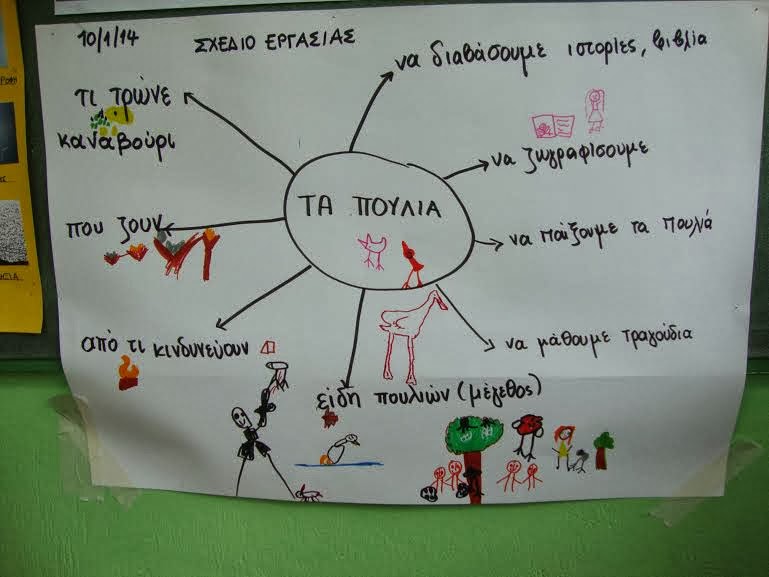 10/1/14
ΣΧΕΔΙΟ ΕΡΓΑΣΙΑΣ
να διαβάσουμε ιστορίες, βιβλία
τι τρώνε
καναβούρι
να ζωγραφίσουμε
ΤΑ ΠΟΥΛΙΑ
που ζουν
να παίξουμε τα πουλιά
από τι κινδυνεύουν
να μάθουμε τραγούδια
είδη πουλιών (μέγεθος)